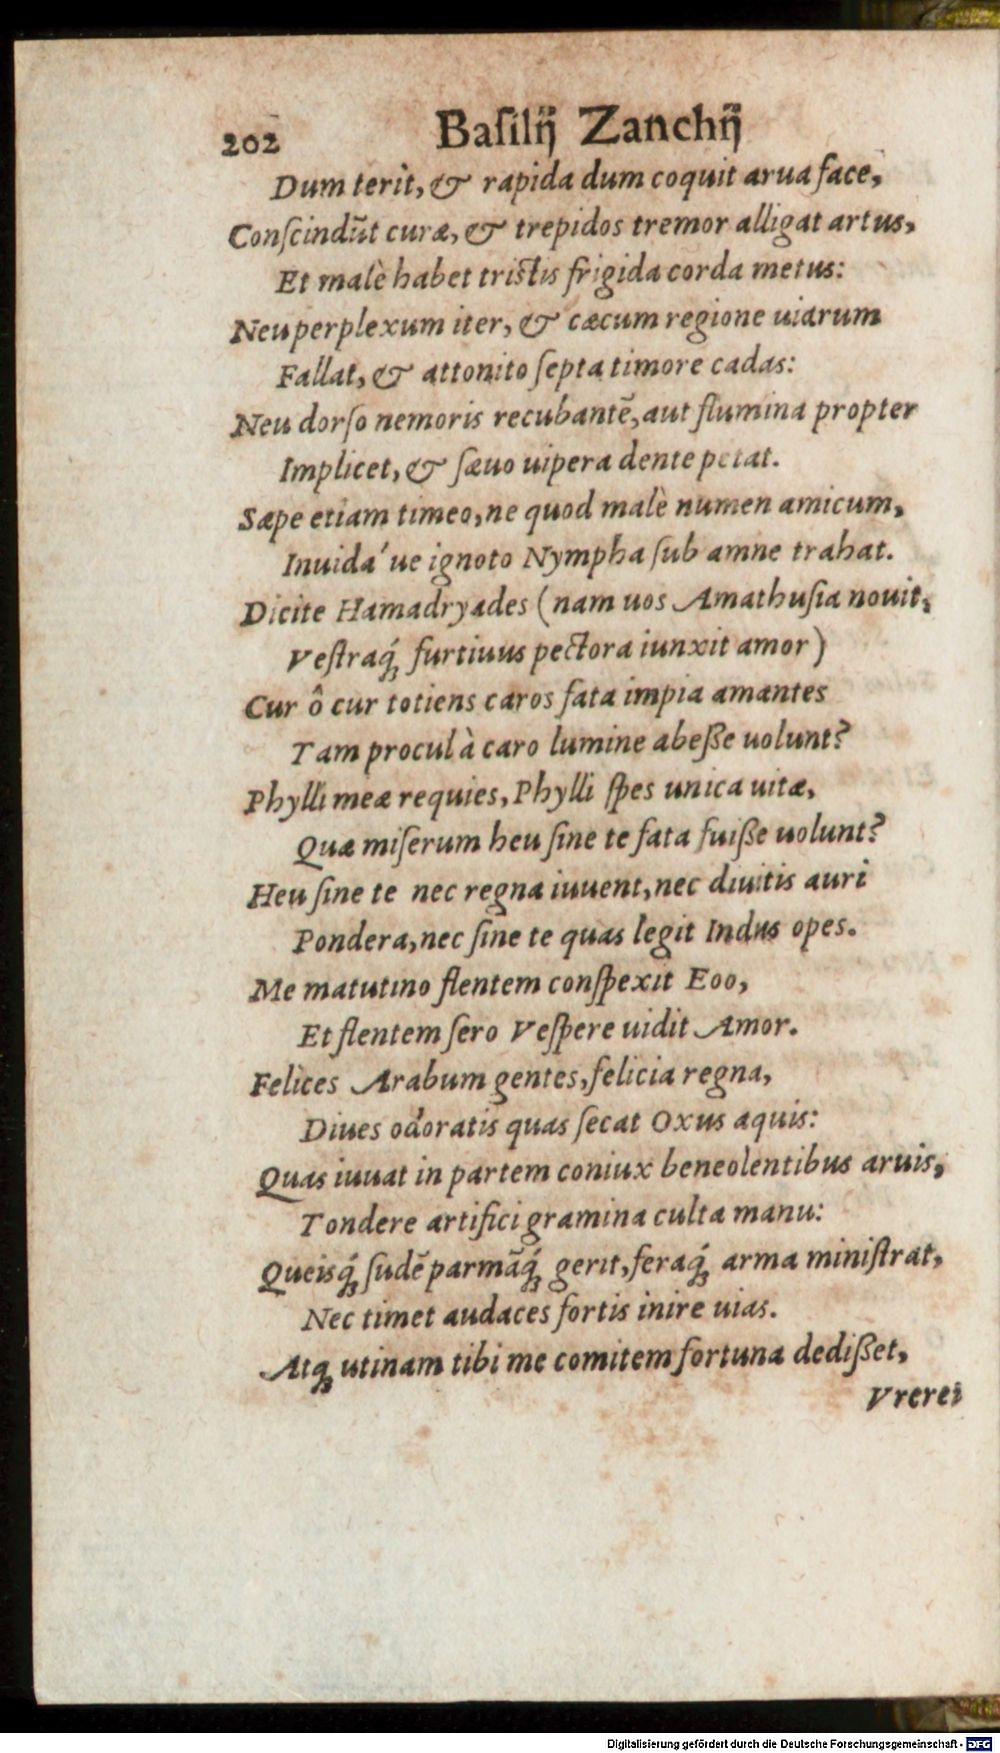 202 Baſilij Zanchij
Dum terit, & rapida dum coquit arua face,
Conſcindũt curæ, & trepidos tremor alligat artus,
Et malè habet tristis frigida corda metus:
Neu perplexum iter, & cæcum regione uiarum
Fallat, & attonito ſepta timore cadas:
Neu dorſo nemoris recubantẽ, aut flumina propter
Implicet, & ſæuo uipera dente petat.
Sæpe etiam timeo, ne quod malè numen amicum,
Inuida´ue ignoto Nympha ſub amne trahat.
Dicite Hamadryades (nam uos Amathuſia nouit,
Veſtraq́; furtiuus pectora iunxit amor)
Cur ô cur totiens caros fata impia amantes
Tam procul à caro lumine abeſſe uolunt?
Phylli meæ requies, Phylli ſpes unica uitæ,
Quæ miſerum heu ſine te fata fuiſſe uolunt?
Heu ſine te nec regna iuuent, nec diuitis auri
Pondera, nec ſine te quas legit Indus opes.
Me matutino flentem conſpexit Eoo,
Et flentem ſero Veſpere uidit Amor.
Felices Arabum gentes, felicia regna,
Diues odoratis quas ſecat Oxus aquis:
Quas iuuat in partem coniux beneolentibus aruis,
Tondere artifici gramina culta manu:
Queisq́; ſudẽ parmãq́; gerit, feraq́; arma miniſtrat,
Nec timet audaces fortis inire uias.
Atq; utinam tibi me comitem fortuna dediſſet,
Vrerei
Digitalisierung gefördert durch die Deutsche Forschungsgemeinschaft - DFG